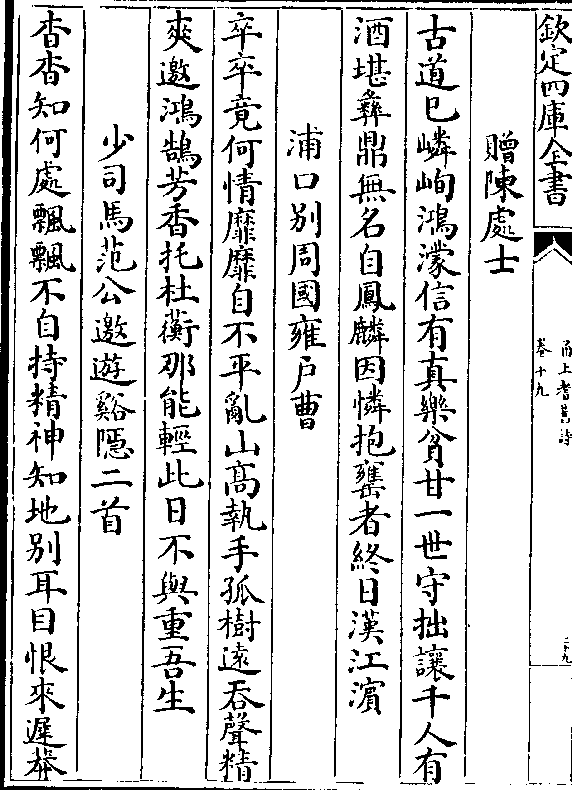 欽定四庫全書
甬上耆舊詩
卷十九
二十九
贈陳處士
古道已嶙峋鴻濛信有真樂貧甘一世守拙讓千人有
酒堪彝鼎無名自鳳麟因憐抱甕者終日漢江濱
浦口别周國雍戸曹
卒卒竟何情靡靡自不平亂山髙執手孤樹逺吞聲精
爽邀鴻鵠芳香托杜蘅那能輕此日不與重吾生
少司馬范公邀遊谿隠二首
杳杳知何處飄飄不自持精神知地别耳目恨來遲